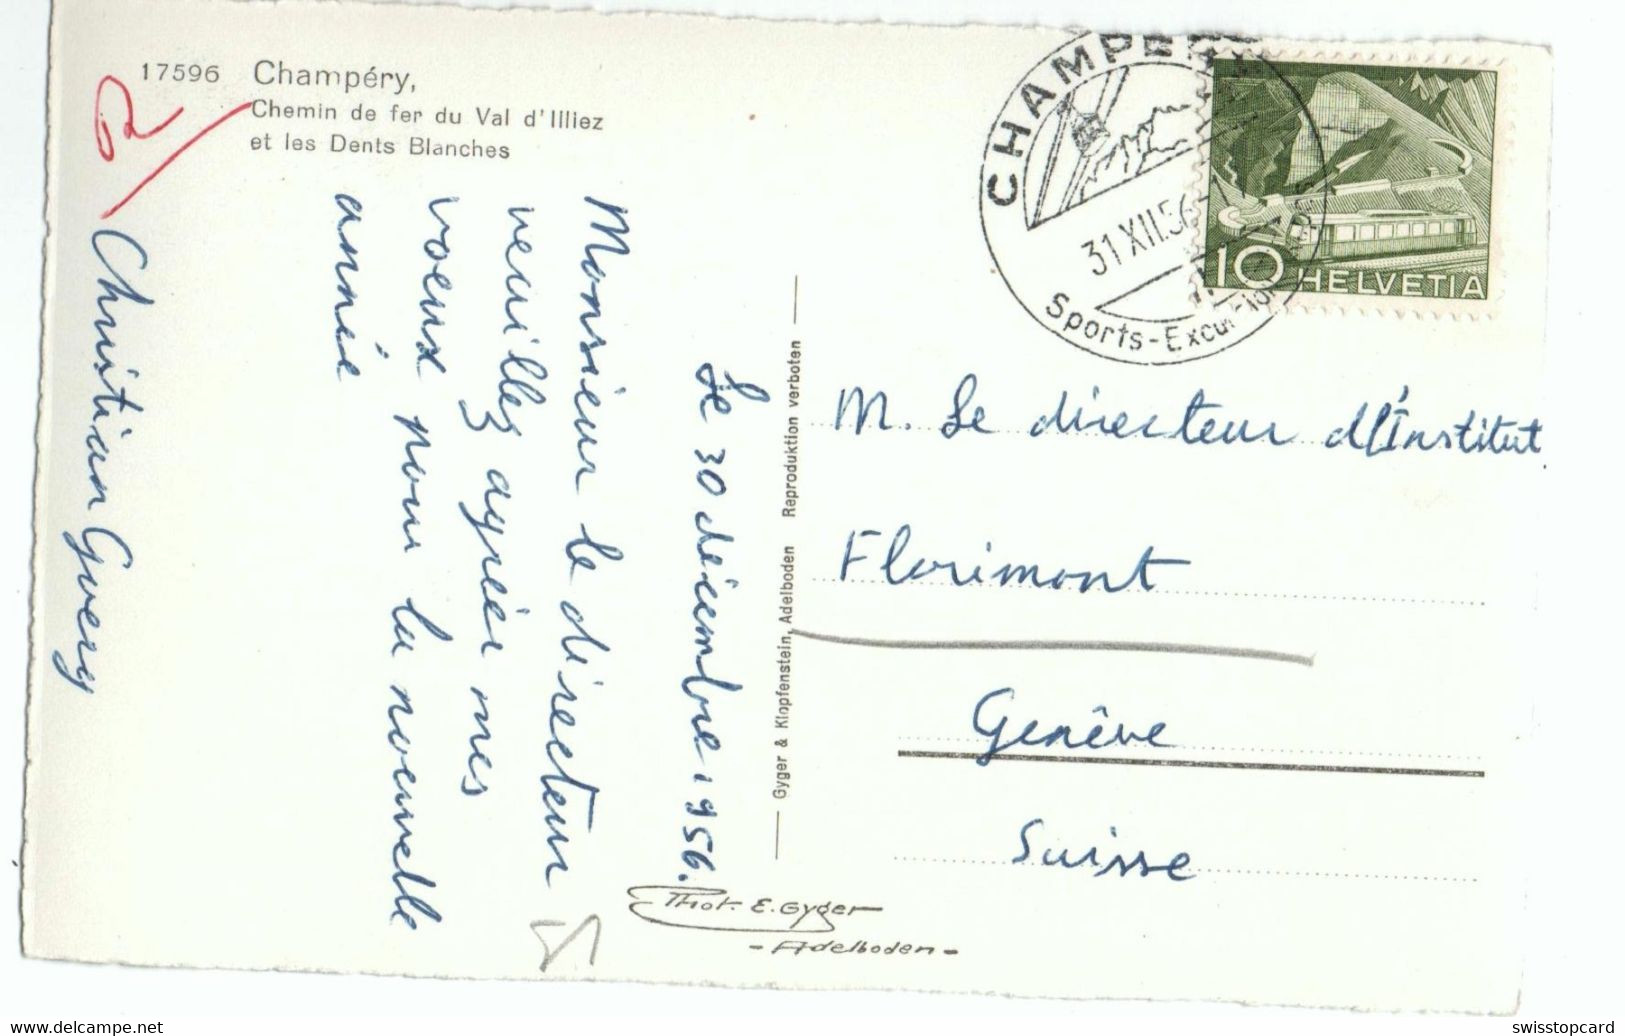 17596 Champéry,
Chemin de fer du Val d'Illiez
et les Dents Blanches
Le 30 décembre 1956.
Monsieur le directeur
veuillez agréer mes
voeux pour la nouvelle
année
Christian Guery
Gyger & Klopfenstein, Adelboden Reproduktion verboten
Phot. E. Gyger
- Adelboden -
CHAMPERY
31 XII.56
Sports-Excursions
10 HELVETIA
M. Le directeur d l'Institut
Florimont
Genève
Suisse
delcampe.net
swisstopcard